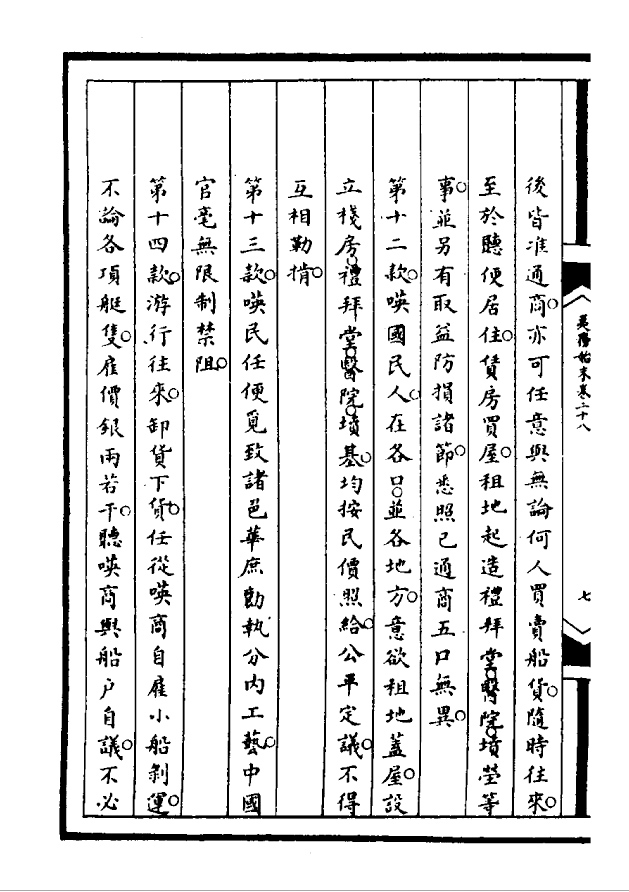 夷務始末卷二十八
七
後皆准通商○亦可任意與無論何人買賣船貨○隨時往來○
至於聽便居住○賃房買屋○租地起造禮拜堂○醫院○墳塋等
事○並另有取益防損諸節○悉照已通商五口無異○
第十二款○嘆國民人○在各口○並各地方○意欲租地蓋屋○設
立棧房○禮拜堂○醫院○墳基○均按民價照給○公平定議○不得
互相勒掯○
第十三款○嘆民任便覓致諸邑華庶勷執分內工藝○中國
官毫無限制禁阻○
第十四款○游行往來○卸貨下貨○任從嘆商自雇小船剝運○
不論各項艇隻○雇價銀兩若干○聽嘆商與船戶自議○不必